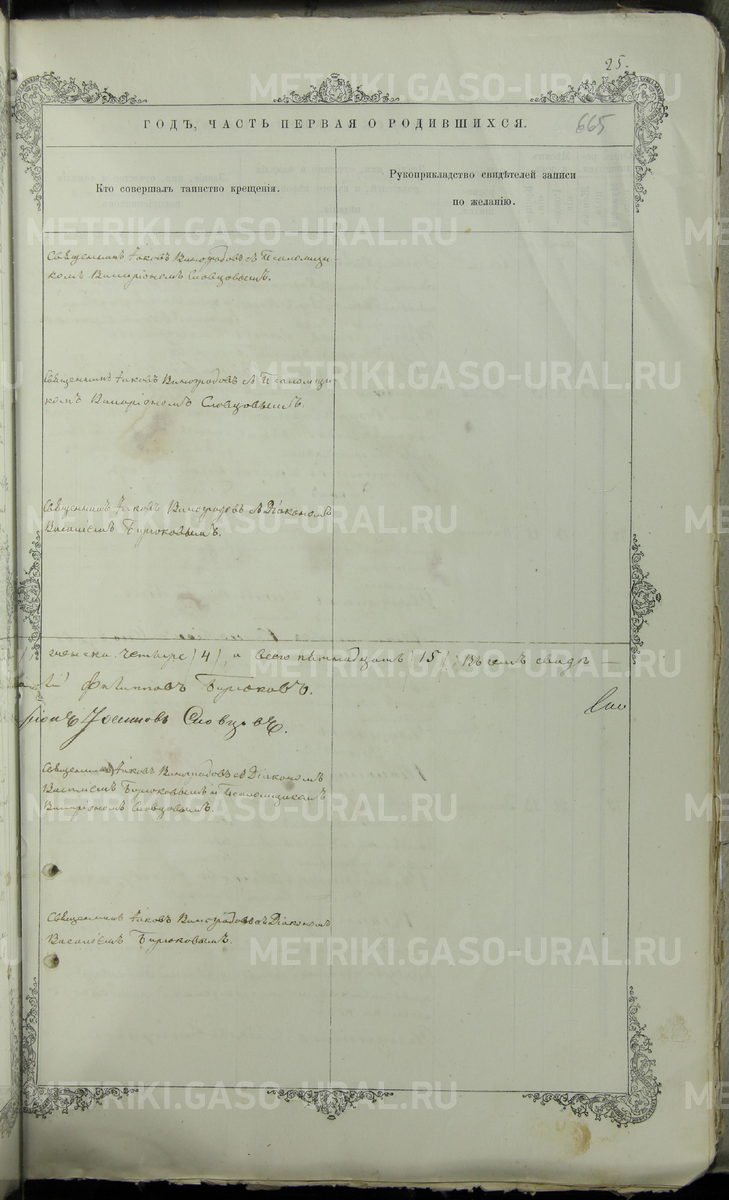 25.
ГОДЪ, ЧАСТЬ ПЕРВАЯ О РОДИВШИХСЯ.
665
Кто совершалъ таинство крещенія.
Рукоприкладство свидѣтелей записи
по желанію.
Священникъ Іаковъ Виноградовъ съ Псаломщи-
комъ Иларіономъ Словцовымъ.
Священникъ Іаковъ Виноградовъ съ Псаломщи-
комъ Иларіономъ Словцовымъ.
Священникъ Іаковъ Виноградовъ съ Діакономъ
Василіемъ Бирюковымъ.
женска четыре (4), а всего пятнадцать (15)
Филипповъ Бирюковъ.
Словцовъ.
Священникъ Іаковъ Виноградовъ съ Діакономъ
Василіемъ Бирюковымъ и Псаломщикомъ
Иларіономъ Словцовымъ.
Священникъ Іаковъ Виноградовъ съ Діакономъ
Василіемъ Бирюковымъ.
METRIKI.GASO-URAL.RU
METRIKI.GASO-URAL.RU
METRIKI.GASO-URAL.RU
METRIKI.GASO-URAL.RU
METRIKI.GASO-URAL.RU
METRIKI.GASO-URAL.RU
METRIKI.GASO-URAL.RU